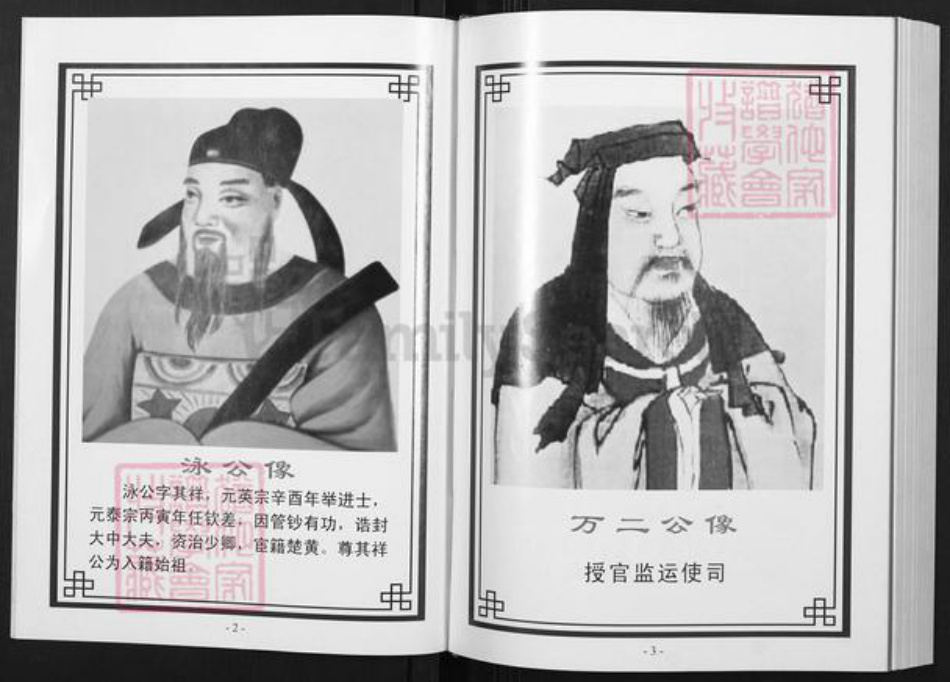 泳公像
泳公字其祥，元英宗辛酉年举进士，
元泰宗丙寅年任钦差，因管钞有功，诰封
大中大夫，资治少卿，宦籍楚黄。尊其祥
公为入籍始祖。
-2-
万二公像
授官监运使司
-3-